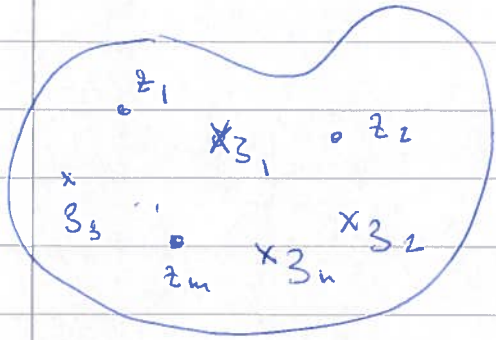 z₁
× ζ₁
z₂
×
ζ₃
× ζ₂
z_m
× ζₙ